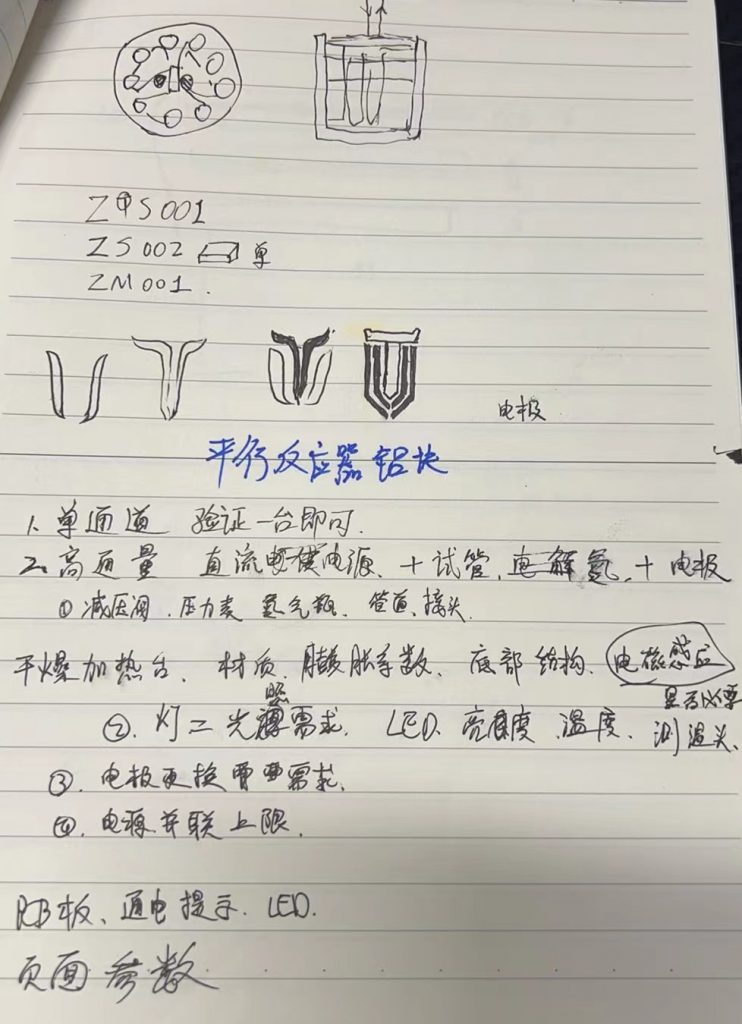 ZS001
ZS002 单
ZM001.
电极
平行反应器铝块
1. 单通道 验证一台即可.
2. 高通量 直流电源、+试管, 电解氢, +电极
① 减压阀、压力表 氢气瓶、管道、接头
干燥加热台、材质、膨胀系数、底部结构、电磁感应
是否必要
②. 灯 = 光照需求. LED、亮度、温度、测温头、
③. 电极更换需求.
④. 电源并联上限.
PCB板、通电提示. LED.
页面参数